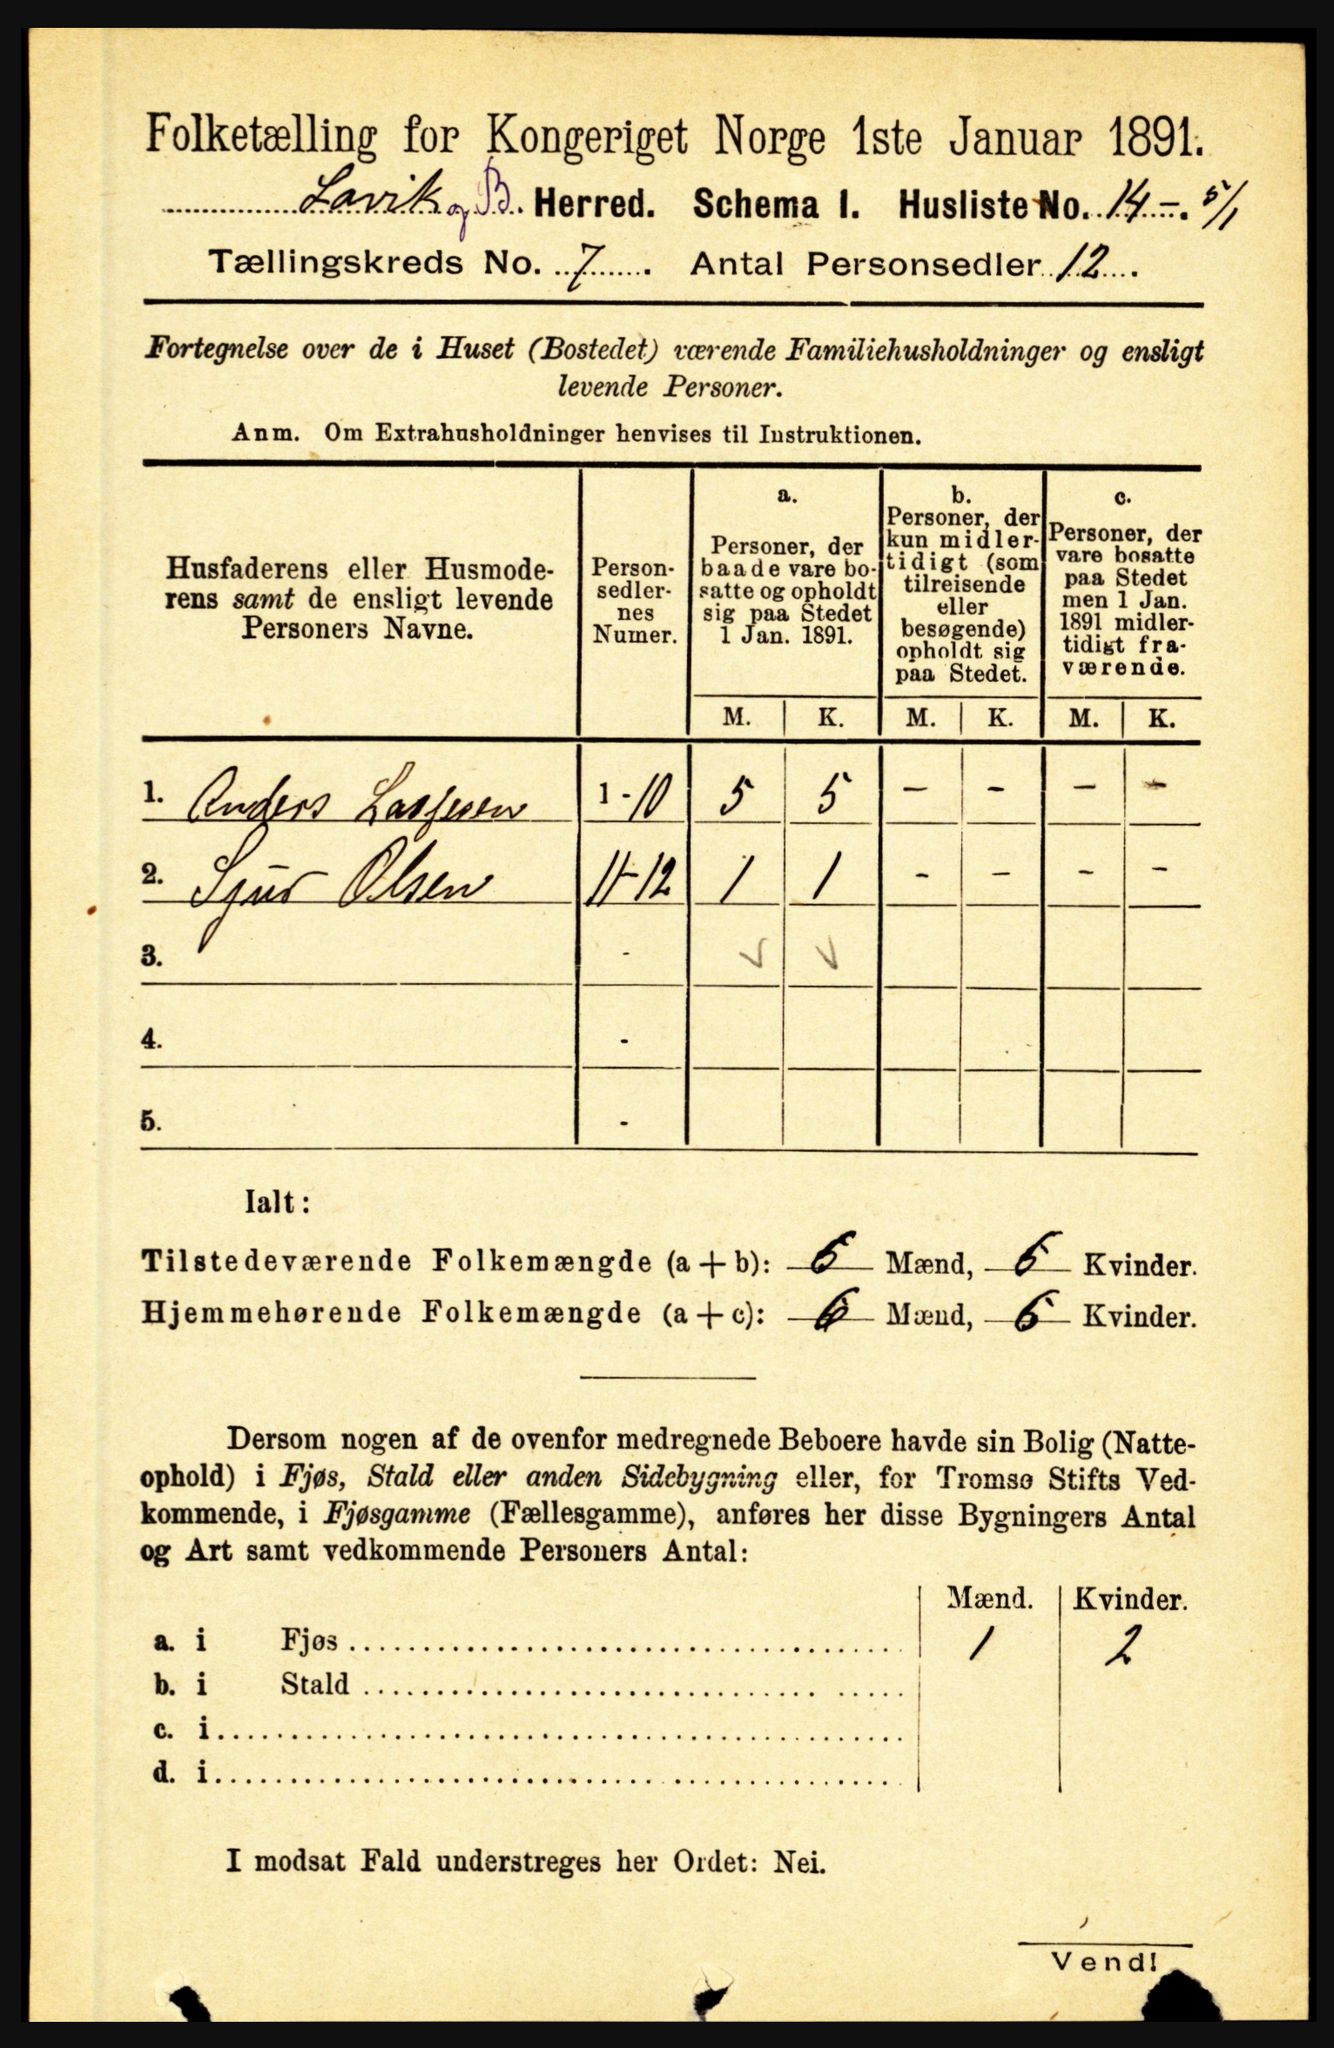 Folketælling for Kongeriget Norge 1ste Januar 1891.
Lavik og B. Herred. Schema I. Husliste No. 14 -. 5/1
Tællingskreds No. 7. Antal Personsedler 12.
Fortegnelse over de i Huset (Bostedet) værende Familiehusholdninger og ensligt
levende Personer.
Anm. Om Extrahusholdninger henvises til Instruktionen.
Husfaderens eller Husmode-
rens samt de ensligt levende
Personers Navne.
Person-
sedler-
nes
Numer.
a.
Personer, der
baade vare bo-
satte og opholdt
sig paa Stedet
1 Jan. 1891.
b.
Personer, der
kun midler-
tidigt (som
tilreisende
eller
besøgende)
opholdt sig
paa Stedet.
c.
Personer, der
vare bosatte
paa Stedet
men 1 Jan.
1891 midler-
tidigt fra-
værende.
M. K. M. K. M. K.
1. Anders Lassesen 1-10 5 5 - - - -
2. Sjur Olsen 11-12 1 1 - - - -
3. -
4. -
5. -
Ialt:
Tilstedeværende Folkemængde (a + b): 6 Mænd, 6 Kvinder.
Hjemmehørende Folkemængde (a + c): 6 Mænd, 6 Kvinder.
Dersom nogen af de ovenfor medregnede Beboere havde sin Bolig (Natte-
ophold) i Fjøs, Stald eller anden Sidebygning eller, for Tromsø Stifts Ved-
kommende, i Fjøsgamme (Fællesgamme), anføres her disse Bygningers Antal
og Art samt vedkommende Personers Antal:
Mænd. Kvinder.
a. i Fjøs 1 2
b. i Stald
c. i
d. i
I modsat Fald understreges her Ordet: Nei.
Vend!